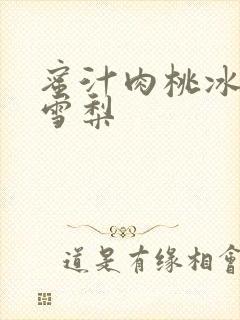 蜜汁肉桃冰
雪梨
道是有缘相會